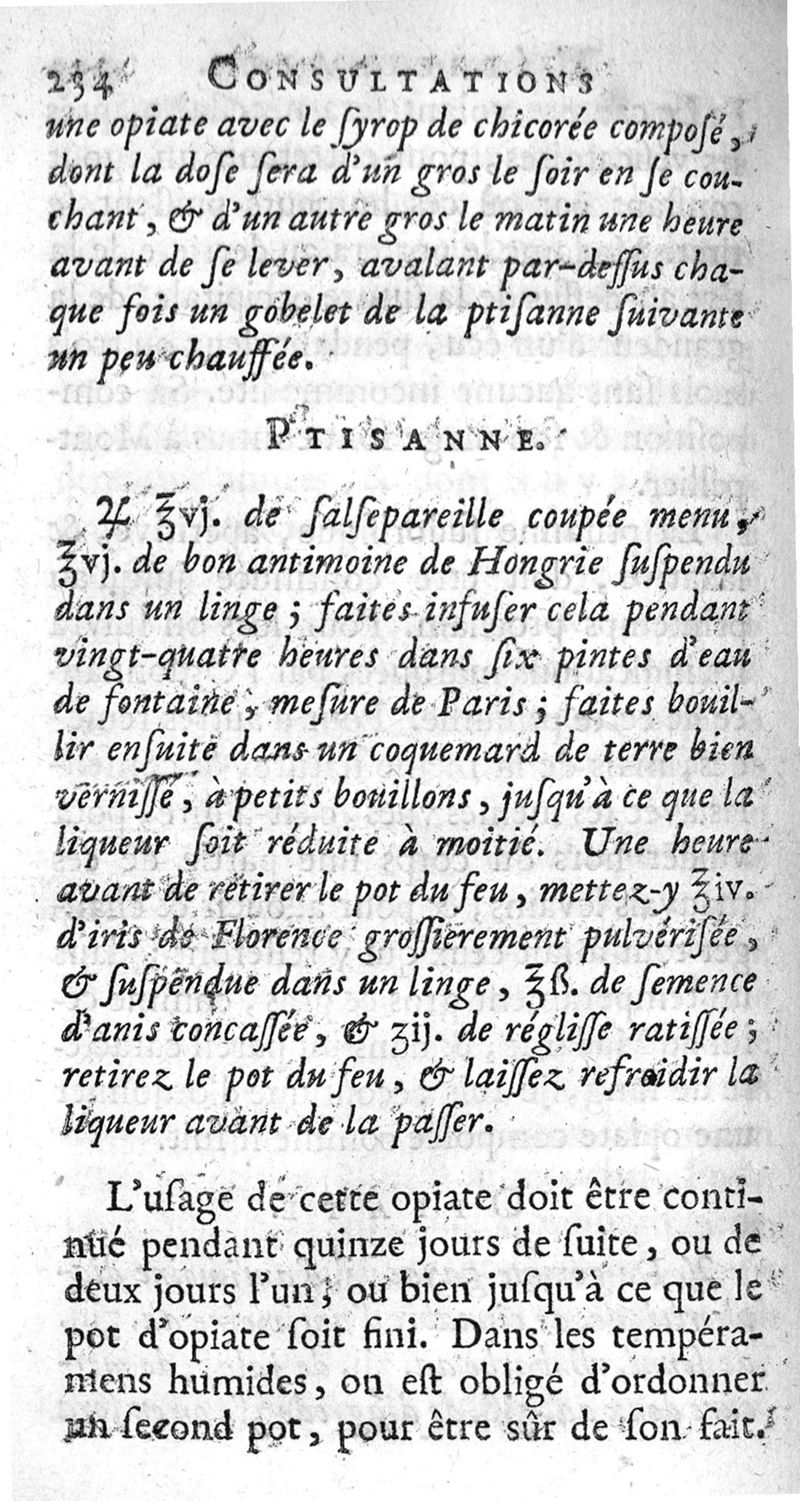 234 CONSULTATIONS
une opiate avec le ſyrop de chicorée compoſé,
dont la doſe ſera d'un gros le ſoir en ſe cou-
chant, & d'un autre gros le matin une heure
avant de ſe lever, avalant par-deſſus cha-
que fois un gobelet de la ptiſanne ſuivante
un peu chauffée.
PTISANNE.
♃ ℥vj. de ſalſepareille coupée menu,
℥vj. de bon antimoine de Hongrie ſuſpendu
dans un linge ; faites infuſer cela pendant
vingt-quatre heures dans ſix pintes d'eau
de fontaine, meſure de Paris ; faites bouil-
lir enſuite dans un coquemard de terre bien
verniſſé, à petits bouillons, juſqu'à ce que la
liqueur ſoit réduite à moitié. Une heure
avant de retirer le pot du feu, mettez-y ℥iv.
d'iris de Florence groſſierement pulvériſée,
& ſuſpendue dans un linge, ℥ß. de ſemence
d'anis concaſſée, & ʒij. de régliſſe ratiſſée ;
retirez le pot du feu, & laiſſez refroidir la
liqueur avant de la paſſer.
L'uſage de cette opiate doit être conti-
nué pendant quinze jours de ſuite, ou de
deux jours l'un ; ou bien juſqu'à ce que le
pot d'opiate ſoit fini. Dans les tempéra-
mens humides, on eſt obligé d'ordonner
un ſecond pot, pour être sûr de ſon fait.